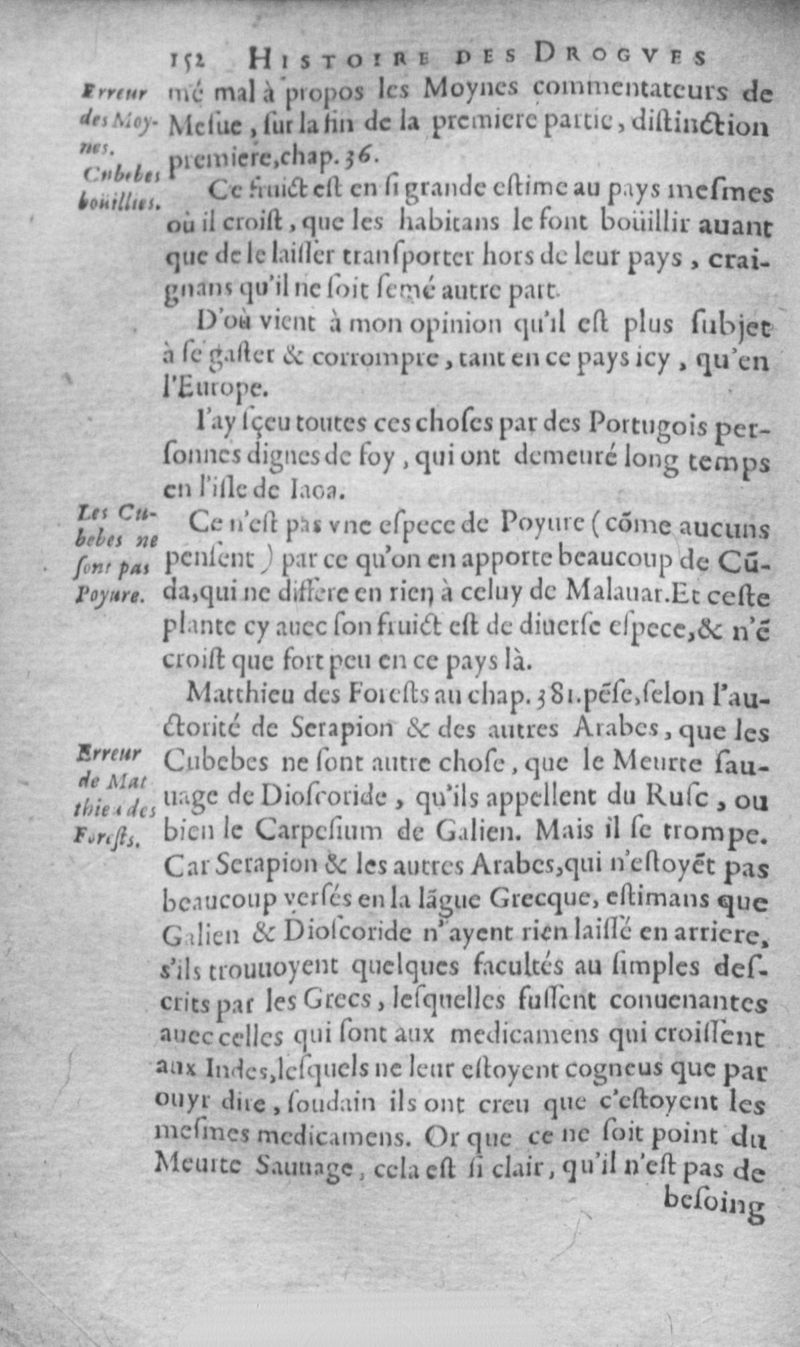 152 HISTOIRE DES DROGVES
Erreur
des Moy-
nes.
Cubebes
boüillies.
mé mal à propos les Moynes commentateurs de
Mesue, sur la fin de la premiere partie, distinction
premiere, chap. 36.
Ce fruict est en si grande estime au pays mesmes
où il croist, que les habitans le font boüillir auant
que de le laisser transporter hors de leur pays, crai-
gnans qu'il ne soit semé autre part.
D'où vient à mon opinion qu'il est plus subjet
à se gaster & corrompre, tant en ce pays icy, qu'en
l'Europe.
I'ay sçeu toutes ces choses par des Portugois per-
sonnes dignes de foy, qui ont demeuré long temps
en l'isle de Iaoa.
Les Cu-
bebes ne
sont pas
Poyure.
Ce n'est pas vne espece de Poyure (cõme aucuns
pensent) par ce qu'on en apporte beaucoup de Cũ-
da, qui ne differe en rien à celuy de Malauar. Et ceste
plante cy auec son fruict est de diuerse espece, & n'ẽ
croist que fort peu en ce pays là.
Matthieu des Forests au chap. 381. pẽse, selon l'au-
ctorité de Serapion & des autres Arabes, que les
Erreur
de Mat
thieu des
Forests.
Cubebes ne sont autre chose, que le Meurte sau-
uage de Dioscoride, qu'ils appellent du Rusc, ou
bien le Carpesium de Galien. Mais il se trompe.
Car Serapion & les autres Arabes, qui n'estoyẽt pas
beaucoup versés en la lãgue Grecque, estimans que
Galien & Dioscoride n'ayent rien laissé en arriere,
s'ils trouuoyent quelques facultés au simples des-
crits par les Grecs, lesquelles fussent conuenantes
auec celles qui sont aux medicamens qui croissent
aux Indes, lesquels ne leur estoyent cogneus que par
ouyr dire, soudain ils ont creu que c'estoyent les
mesmes medicamens. Or que ce ne soit point du
Meurte Sauuage, cela est si clair, qu'il n'est pas de
besoing